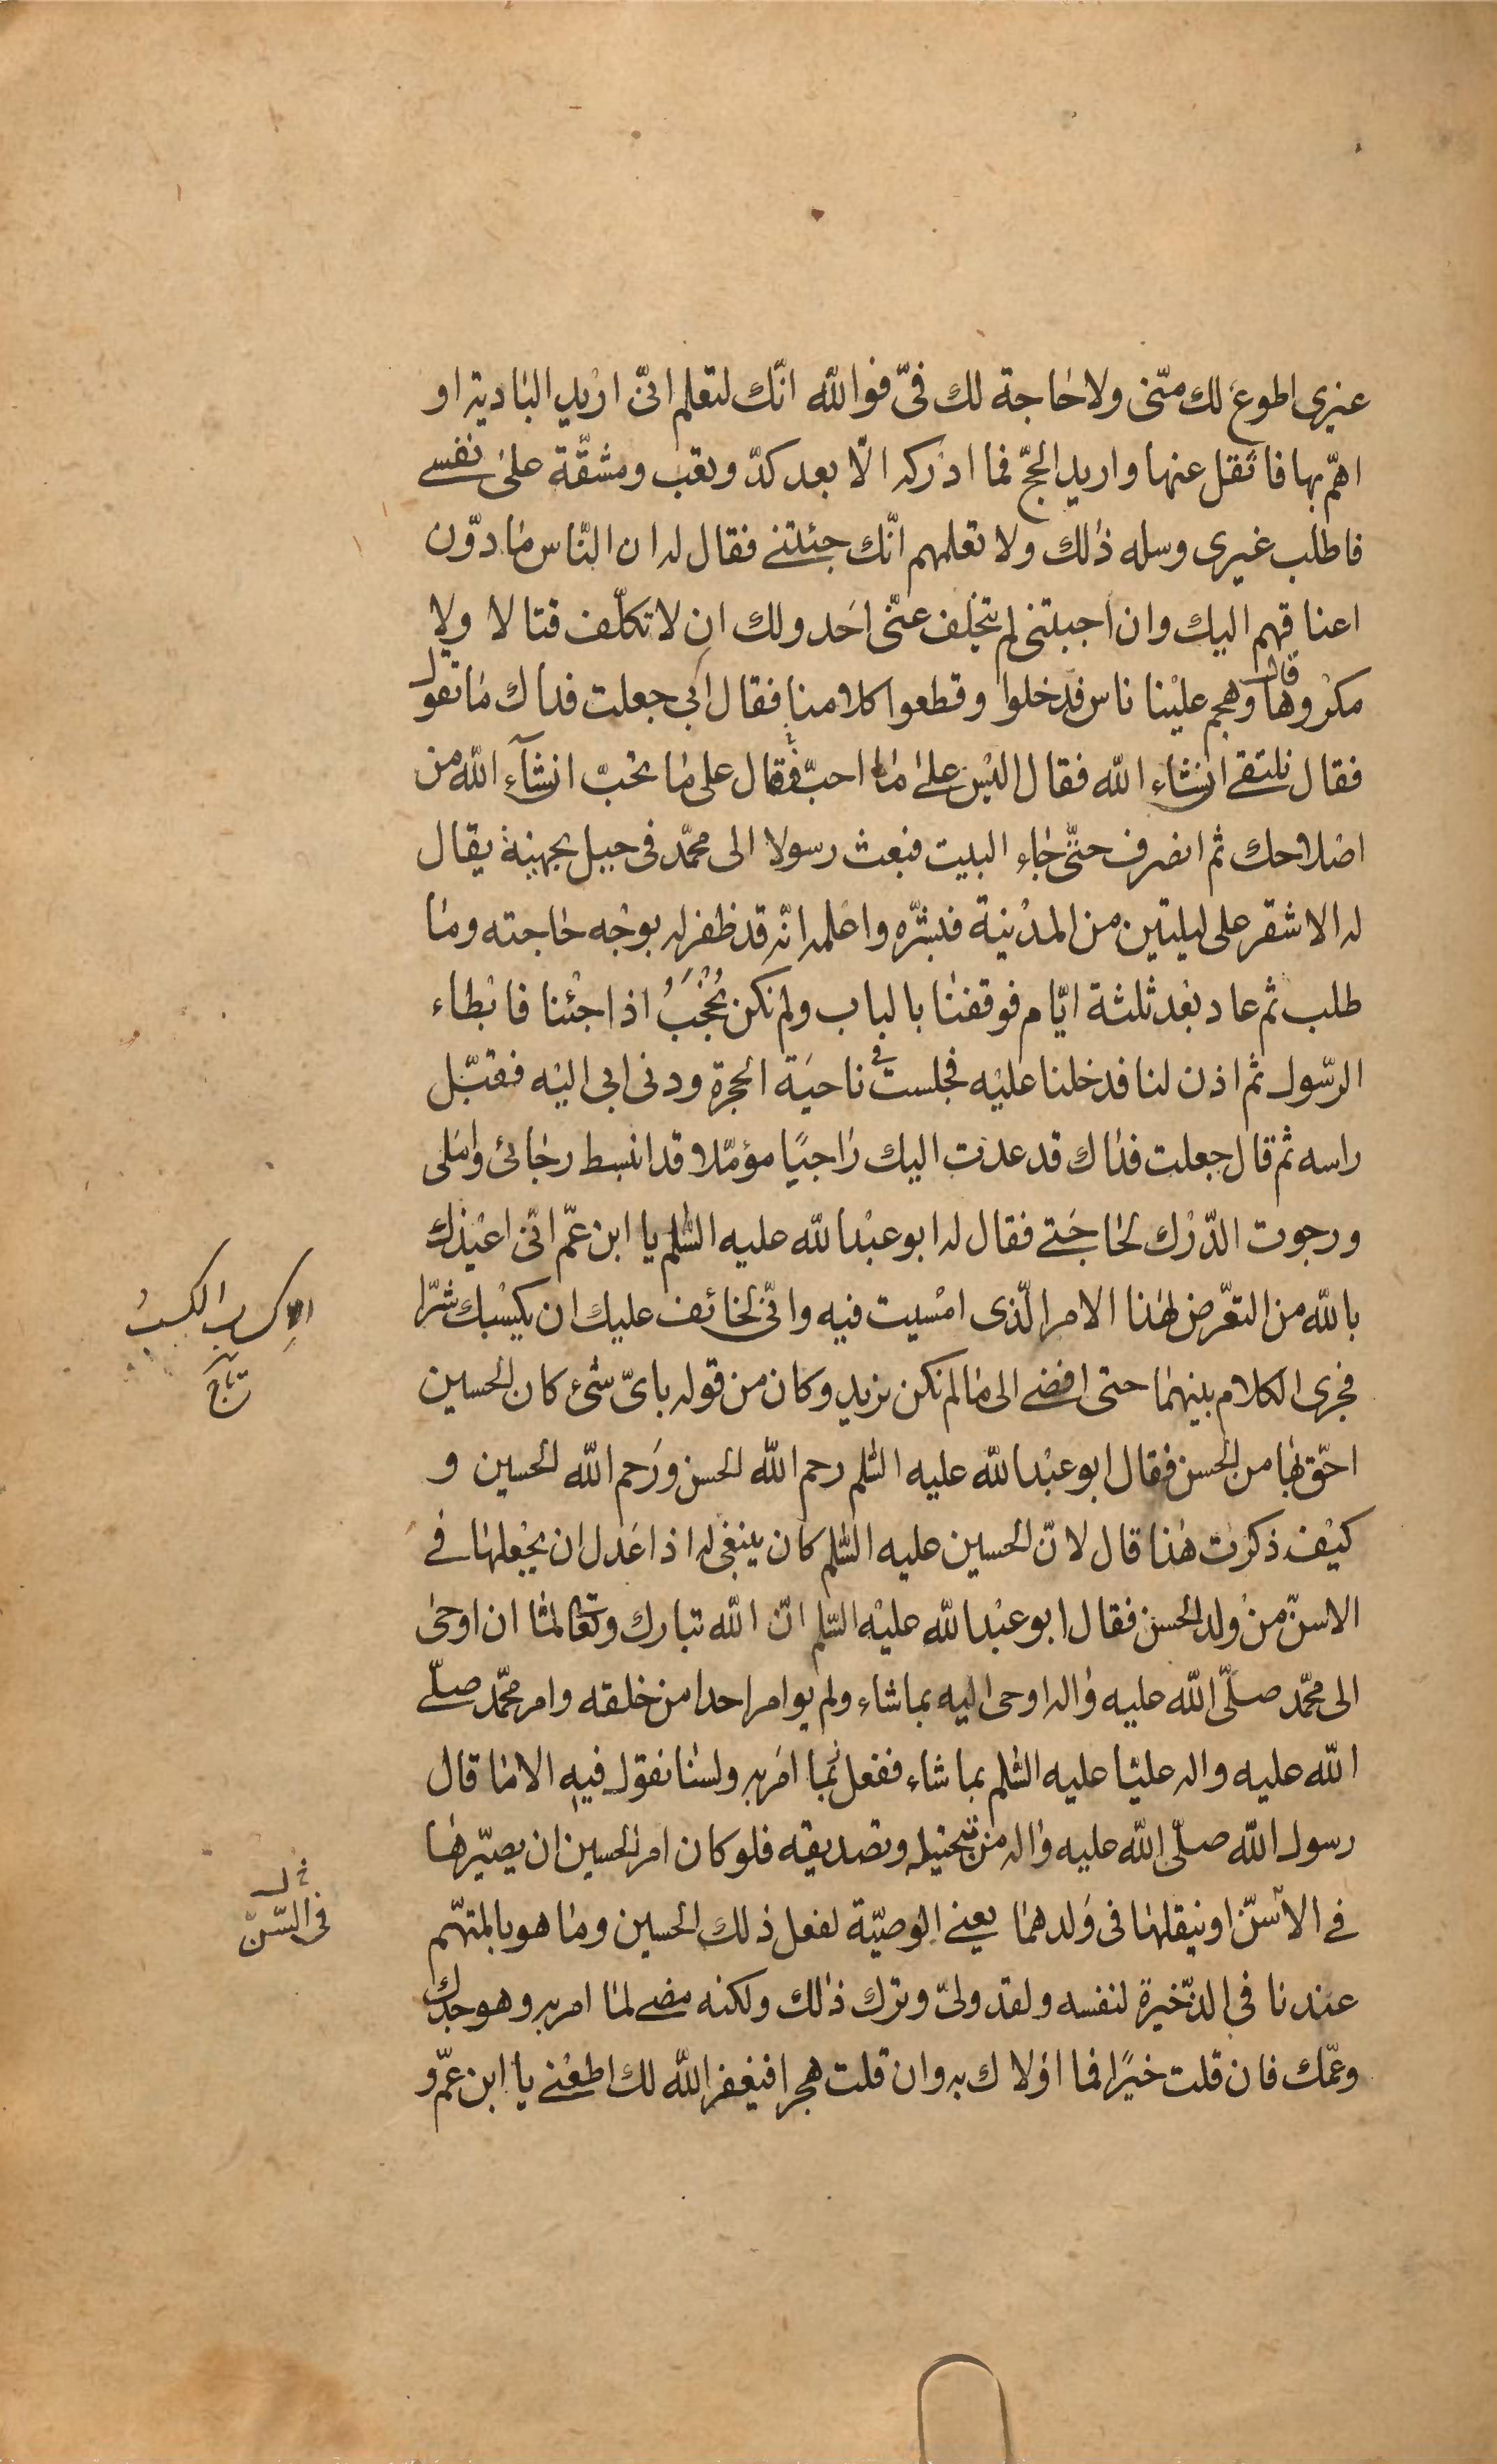 غيرى اطوع لك منّى ولا حاجة لك فىّ فوالله انّك لتعلم انّى اريد البادية او
اهمّ بها فاثقل عنها واريد الحجّ فما ادركه الّا بعد كدّ وتعب ومشقّة على نفسى
فاطلب غيرى وسله ذلك ولا تعلمهم انّك جئتنى فقال له ان النّاس مادّون
اعناقهم اليك وان اجبتنى لم يتخلف عنّى احد ولك ان لا تكلّف قتالا ولا
مكروها قال وهجم علينا ناس فدخلوا وقطعوا كلامنا فقال ابى جعلت فداك ما تقول
فقال نلتقى انشاء الله فقال اليس على ما احبّ فقال على ما تحبّ انشآء الله من
اصلاحك ثم انصرف حتّى جاء البيت فبعث رسولا الى محمّد فى جبل بجهينة يقال
له الاشقر على ليلتين من المدينة فبشّره واعلمه انّه قد ظفر له بوجه حاجته وما
طلب ثم عاد بعد ثلثة ايّام فوقفنا بالباب ولم نكن نُحْجَبُ اذا جئنا فابطاء
الرّسول ثم اذن لنا فدخلنا عليه فجلست فى ناحية الحجرة ودنى ابى اليه فقبّل
راسه ثم قال جعلت فداك قد عدت اليك راجيًا مؤمّلا قد انبسط رجائى واملى
ورجوت الدّرك لحاجتى فقال له ابو عبد الله عليه السّلم يا ابن عمّ انّى اعيذك
بالله من التعّرض لهذا الامر الّذى امسيت فيه وانّى لخائف عليك ان يكسبك شرّا
فجرى الكلام بينهما حتى افضى الى ما لم نكن نريد وكان من قوله باىّ شئ كان الحسين
احقّ بها من الحسن فقال ابو عبد الله عليه السّلم رحم الله الحسن ورحم الله الحسين و
كيف ذكرت هذا قال لانّ الحسين عليه السّلم كان ينبغى له اذا عدل ان يجعلها فى
الاسنّ من ولد الحسن فقال ابو عبد الله عليه السّلم انّ الله تبارك وتعالى لمّا ان اوحى
الى محمّد صلّى الله عليه واله اوحى اليه بما شاء ولم يوامر احدا من خلقه وامر محمّد صلّى
الله عليه واله عليّا عليه السّلم بما شاء ففعل بما امر به ولسنا نقول فيه الا ما قال
رسول الله صلّى الله عليه واله من تبجيله وتصديقه فلو كان امر الحسين ان يصيّرها
فى الاسنّ او ينقلها فى ولدهما يعنى الوصيّة لفعل ذلك الحسين وما هو بالمتهّم
عندنا فى الذّخيرة لنفسه ولقد ولىّ وترك ذلك ولكنه مضى لما امر به وهو جدك
وعمّك فان قلت خيرًا فما اولاك به وان قلت هجرا فيغفر الله لك اطعنى يا ابن عمّ و
الاكساب الكسب
تاج
فى السّنّ